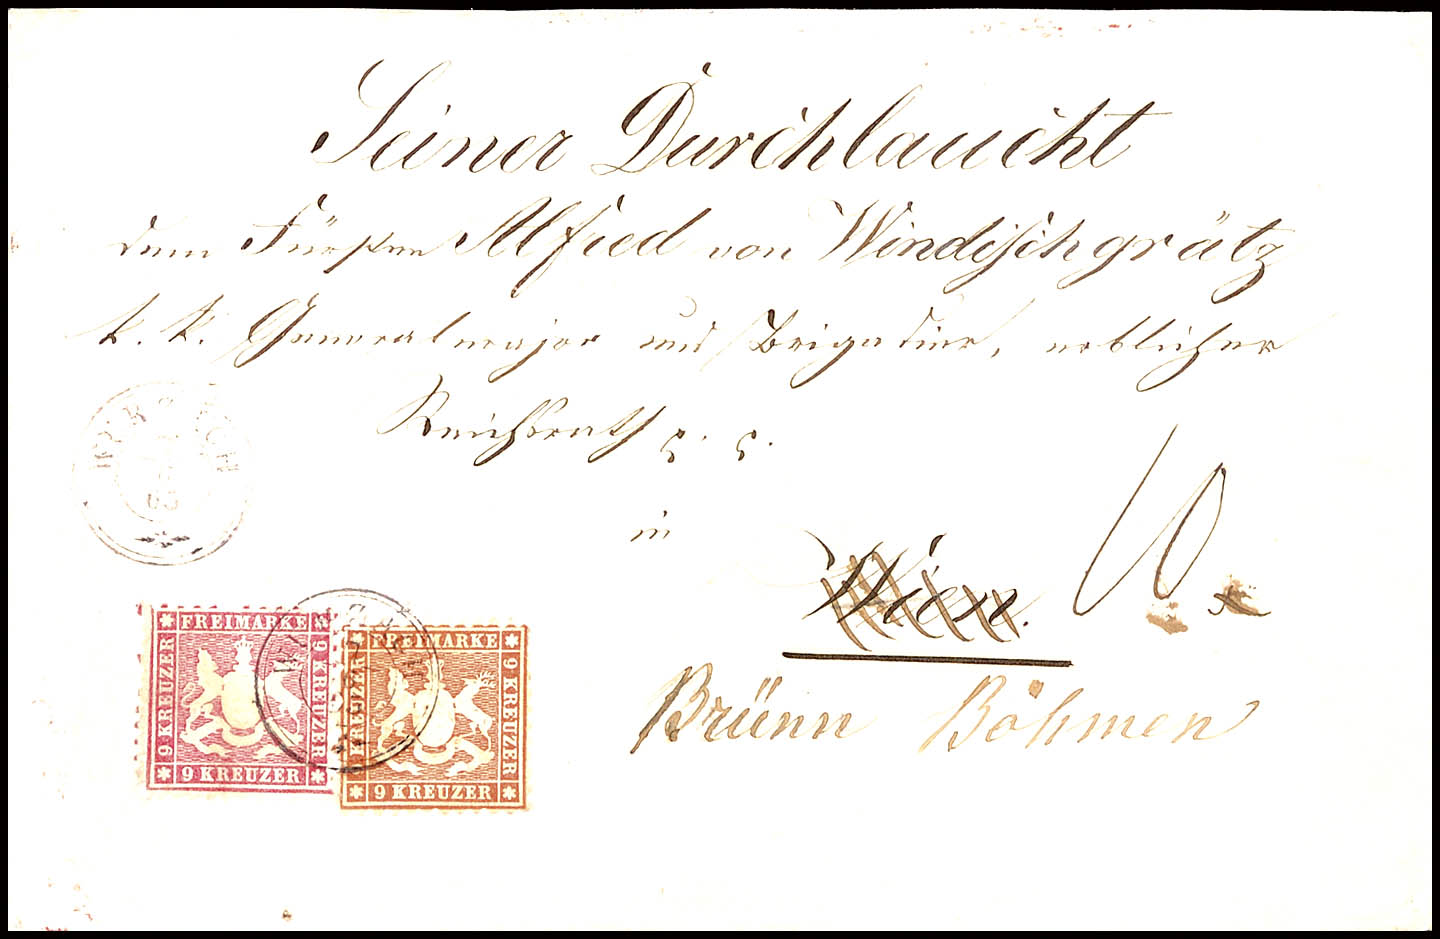 Seiner Durchlaucht
dem Fürsten Alfred von Windischgrätz
k. k. Generalmajor und Brigadier, erblicher
Reichsrath
in
Wien.
Brünn Böhmen
63
FREIMARKE
9 KREUZER
9 KREUZER
9 KREUZER
FREIMARKE
KREUZER
9 KREUZER
9 KREUZER